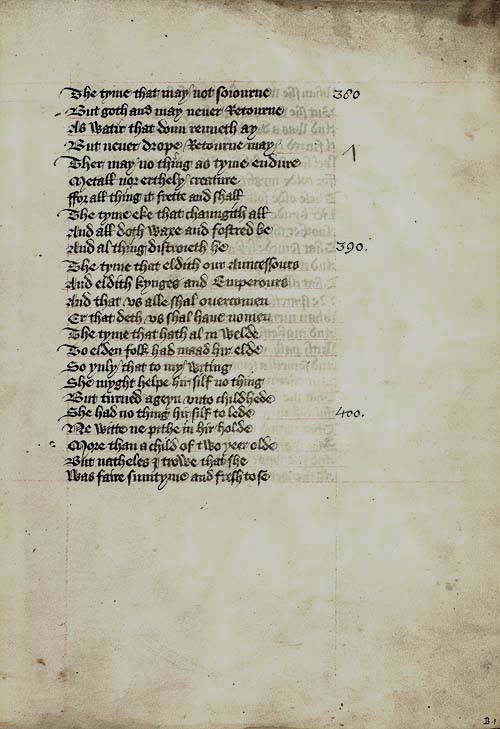 The tyme that may not soiourne 380
But goth and may neuer Retourne
As watir that doun renneth ay
But neuer drope Retourne may
Ther may no thing as tyme endure
Metall nor erthely creature
ffor all thing it frette and shall
The tyme eke that chaungith all
And all doth waxe and fostred be
And al thing distroieth he 390.
The tyme that eldith our Auncessours
And eldith kynges and Emperours
And that vs alle shal ouercomen
Er that deth vs shal haue nomen
The tyme that hath al in welde
To elden folk had maad hir elde
So ynly that to my witing
She myght helpe hir silf no thing
But turned ageyn vnto childhede
She had no thing hir silf to lede 400.
Ne witte ne pithe in hir holde
More than a child of two yeer olde
But natheles I trowe that she
Was faire sumtyme and fresh to se
B.1